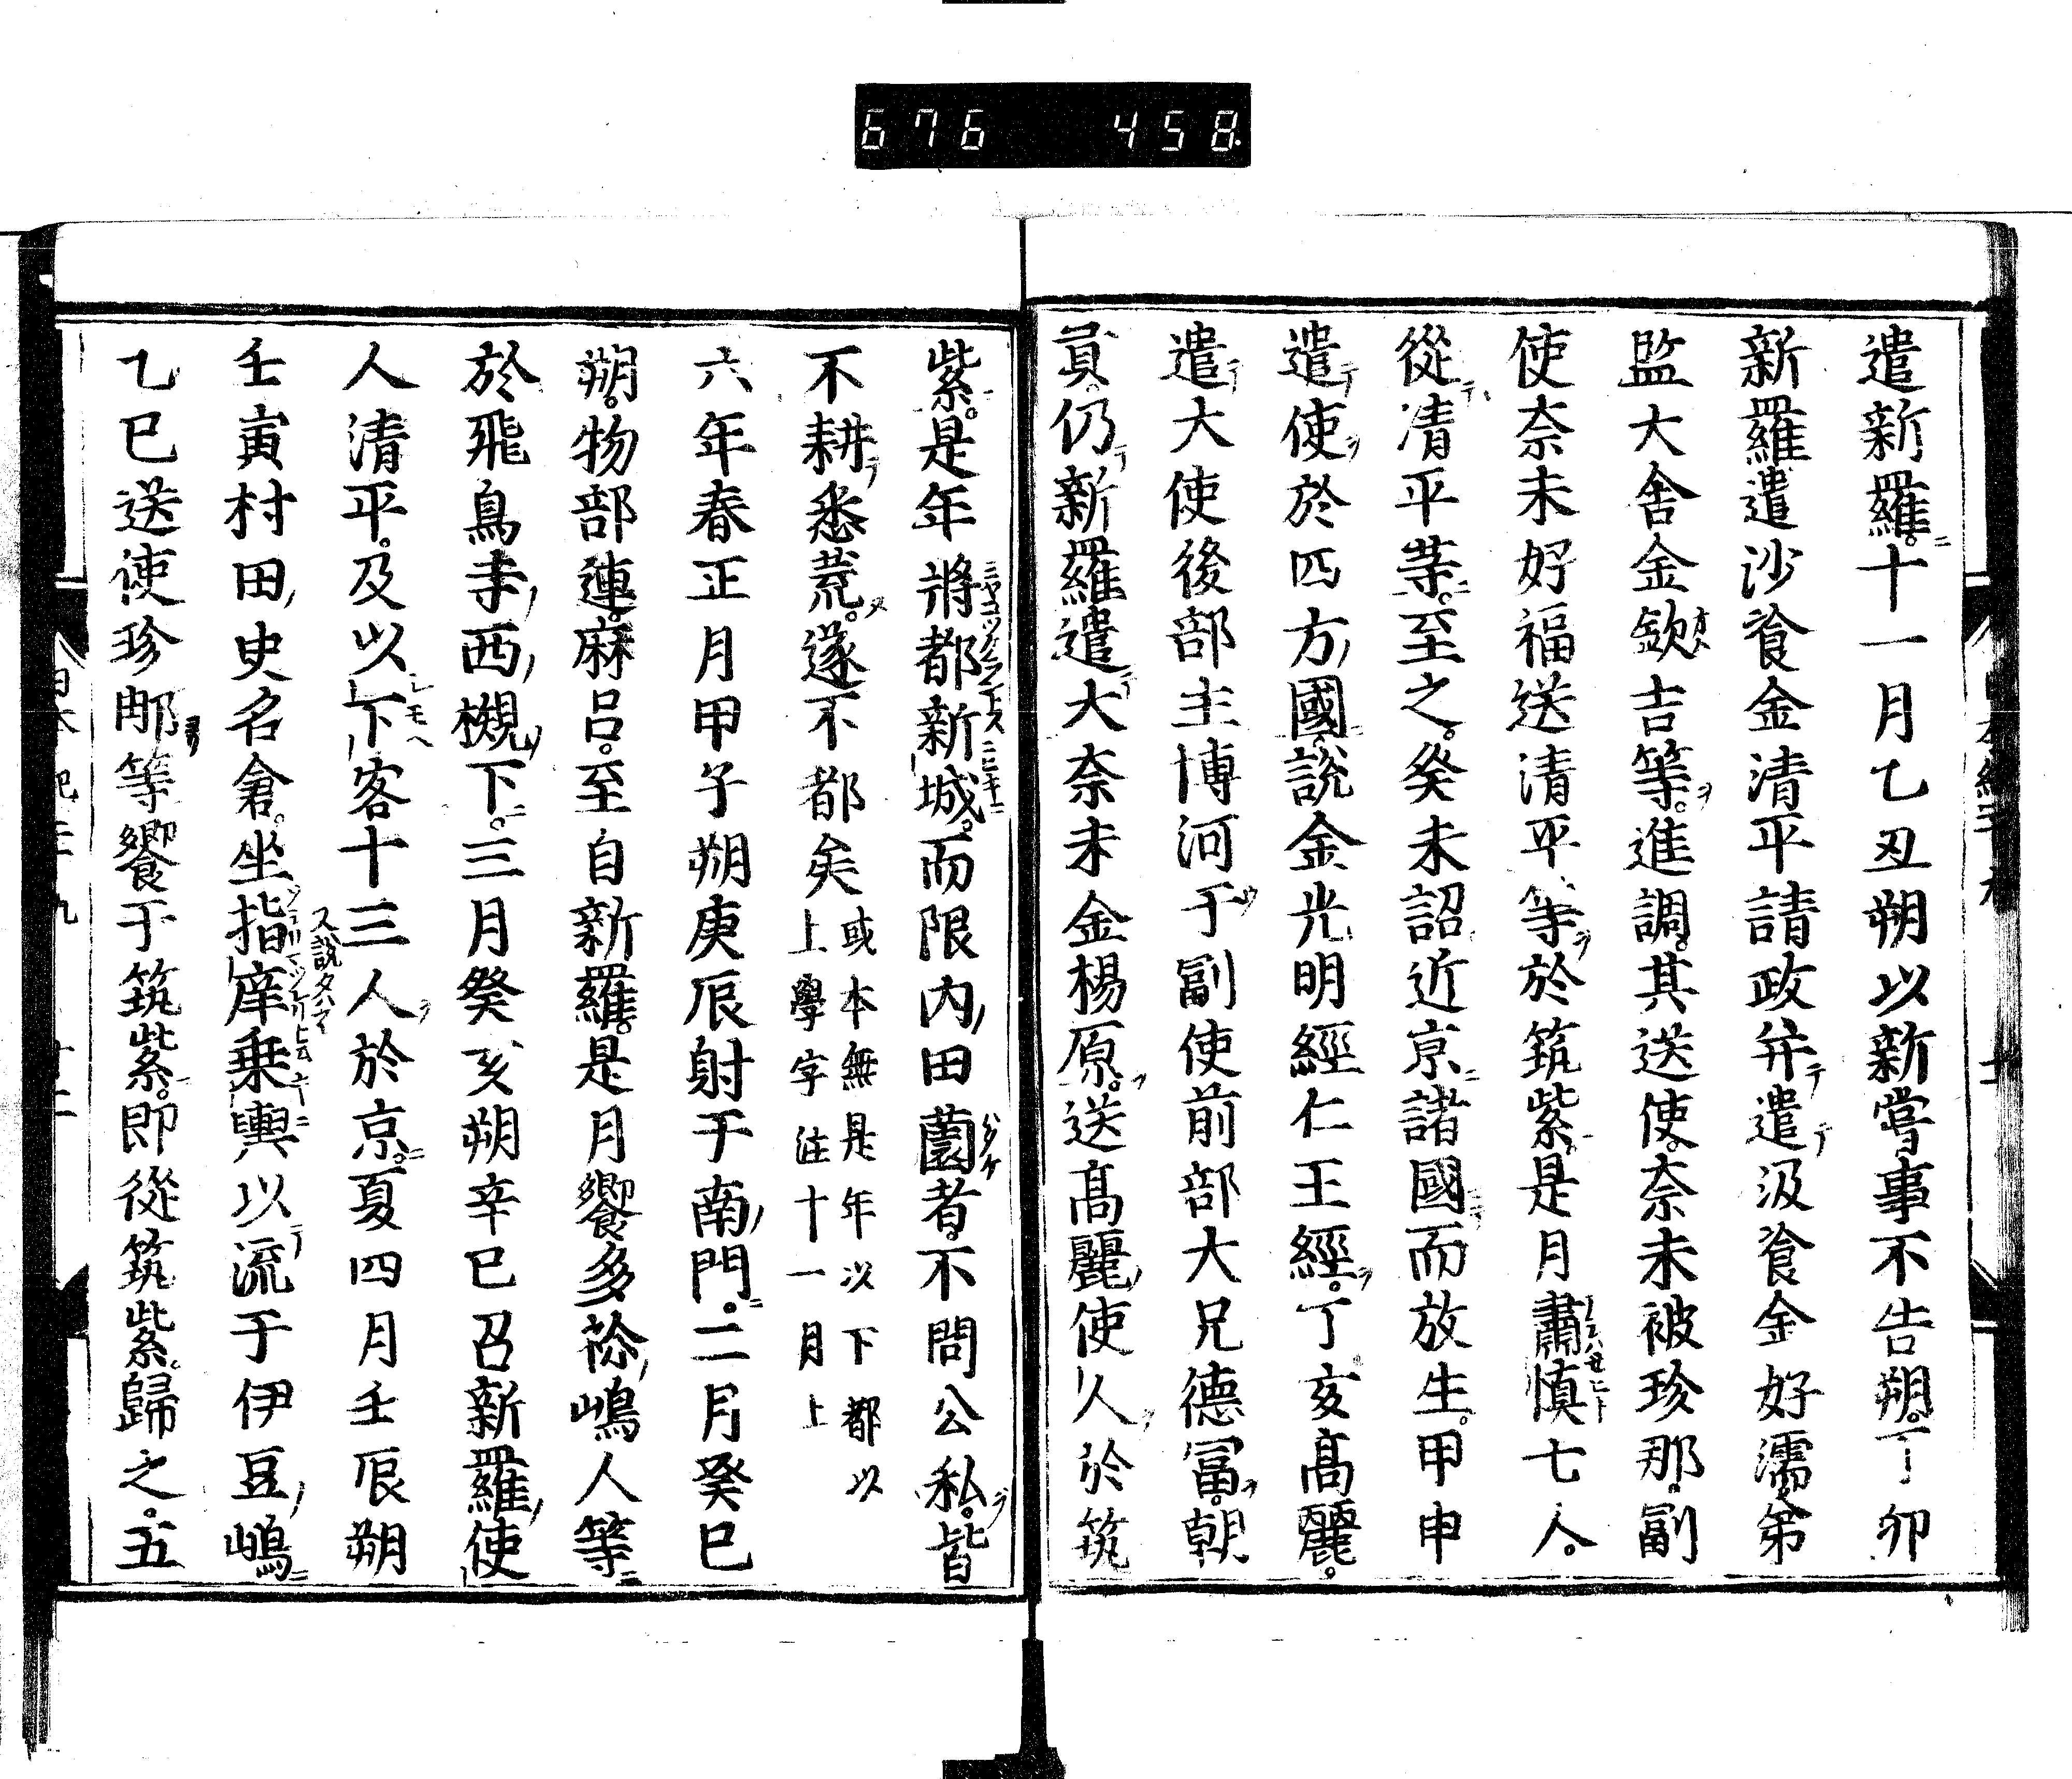 676 458.
遣新羅。十一月乙丑朔以新嘗事不告朔。丁卯
新羅遣沙飡金清平請政并遣汲飡金好濡弟
監大舍金欽吉等。進調。其送使。奈未被珍那。副
使奈未好福送清平等於筑紫。是月肅慎七人。
從清平等。至之。癸未詔近京諸國而放生。甲申
遣使於四方國。説金光明經仁王經。丁亥高麗。
遣大使後部主博河于副使前部大兄德冨。朝
貢。仍新羅遣大奈末金楊原。送高麗使人於筑
紫。是年將都新城。而限内田薗者。不問公私。皆
不耕悉荒。遂不都矣
或本無是年以下都以
上學字注十一月上
六年春正月甲子朔庚辰射于南門。二月癸巳
朔。物部連。麻呂。至自新羅。是月饗多祢嶋人等
於飛鳥寺西槻下。三月癸亥朔辛巳召新羅使
人清平。及以下客十三人於京。夏四月壬辰朔
壬寅村田史名倉。坐指㡿乗輿以流于伊豆嶋
乙巳送使珍那等饗于筑紫。即從筑紫。歸之。五